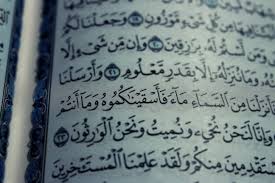 مِن كُلِّ شَىْءٍ مَّوْزُونٍ ١٩ وَجَعَلْنَا لَكُمْ
وَمَن لَّسْتُمْ لَهُۥ بِرَٰزِقِينَ ٢٠ وَإِن مِّن شَىْءٍ
وَمَا نُنَزِّلُهُۥٓ إِلَّا بِقَدَرٍ مَّعْلُومٍ ٢١ وَأَرْسَلْنَا
نزَلْنَا مِنَ ٱلسَّمَآءِ مَآءً فَأَسْقَيْنَٰكُمُوهُ وَمَآ أَنتُمْ
وَإِنَّا لَنَحْنُ نُحْىِۦ وَنُمِيتُ وَنَحْنُ ٱلْوَٰرِثُونَ ٢٣
تَقْدِمِينَ مِنكُمْ وَلَقَدْ عَلِمْنَا ٱلْمُسْتَـْٔخِرِينَ